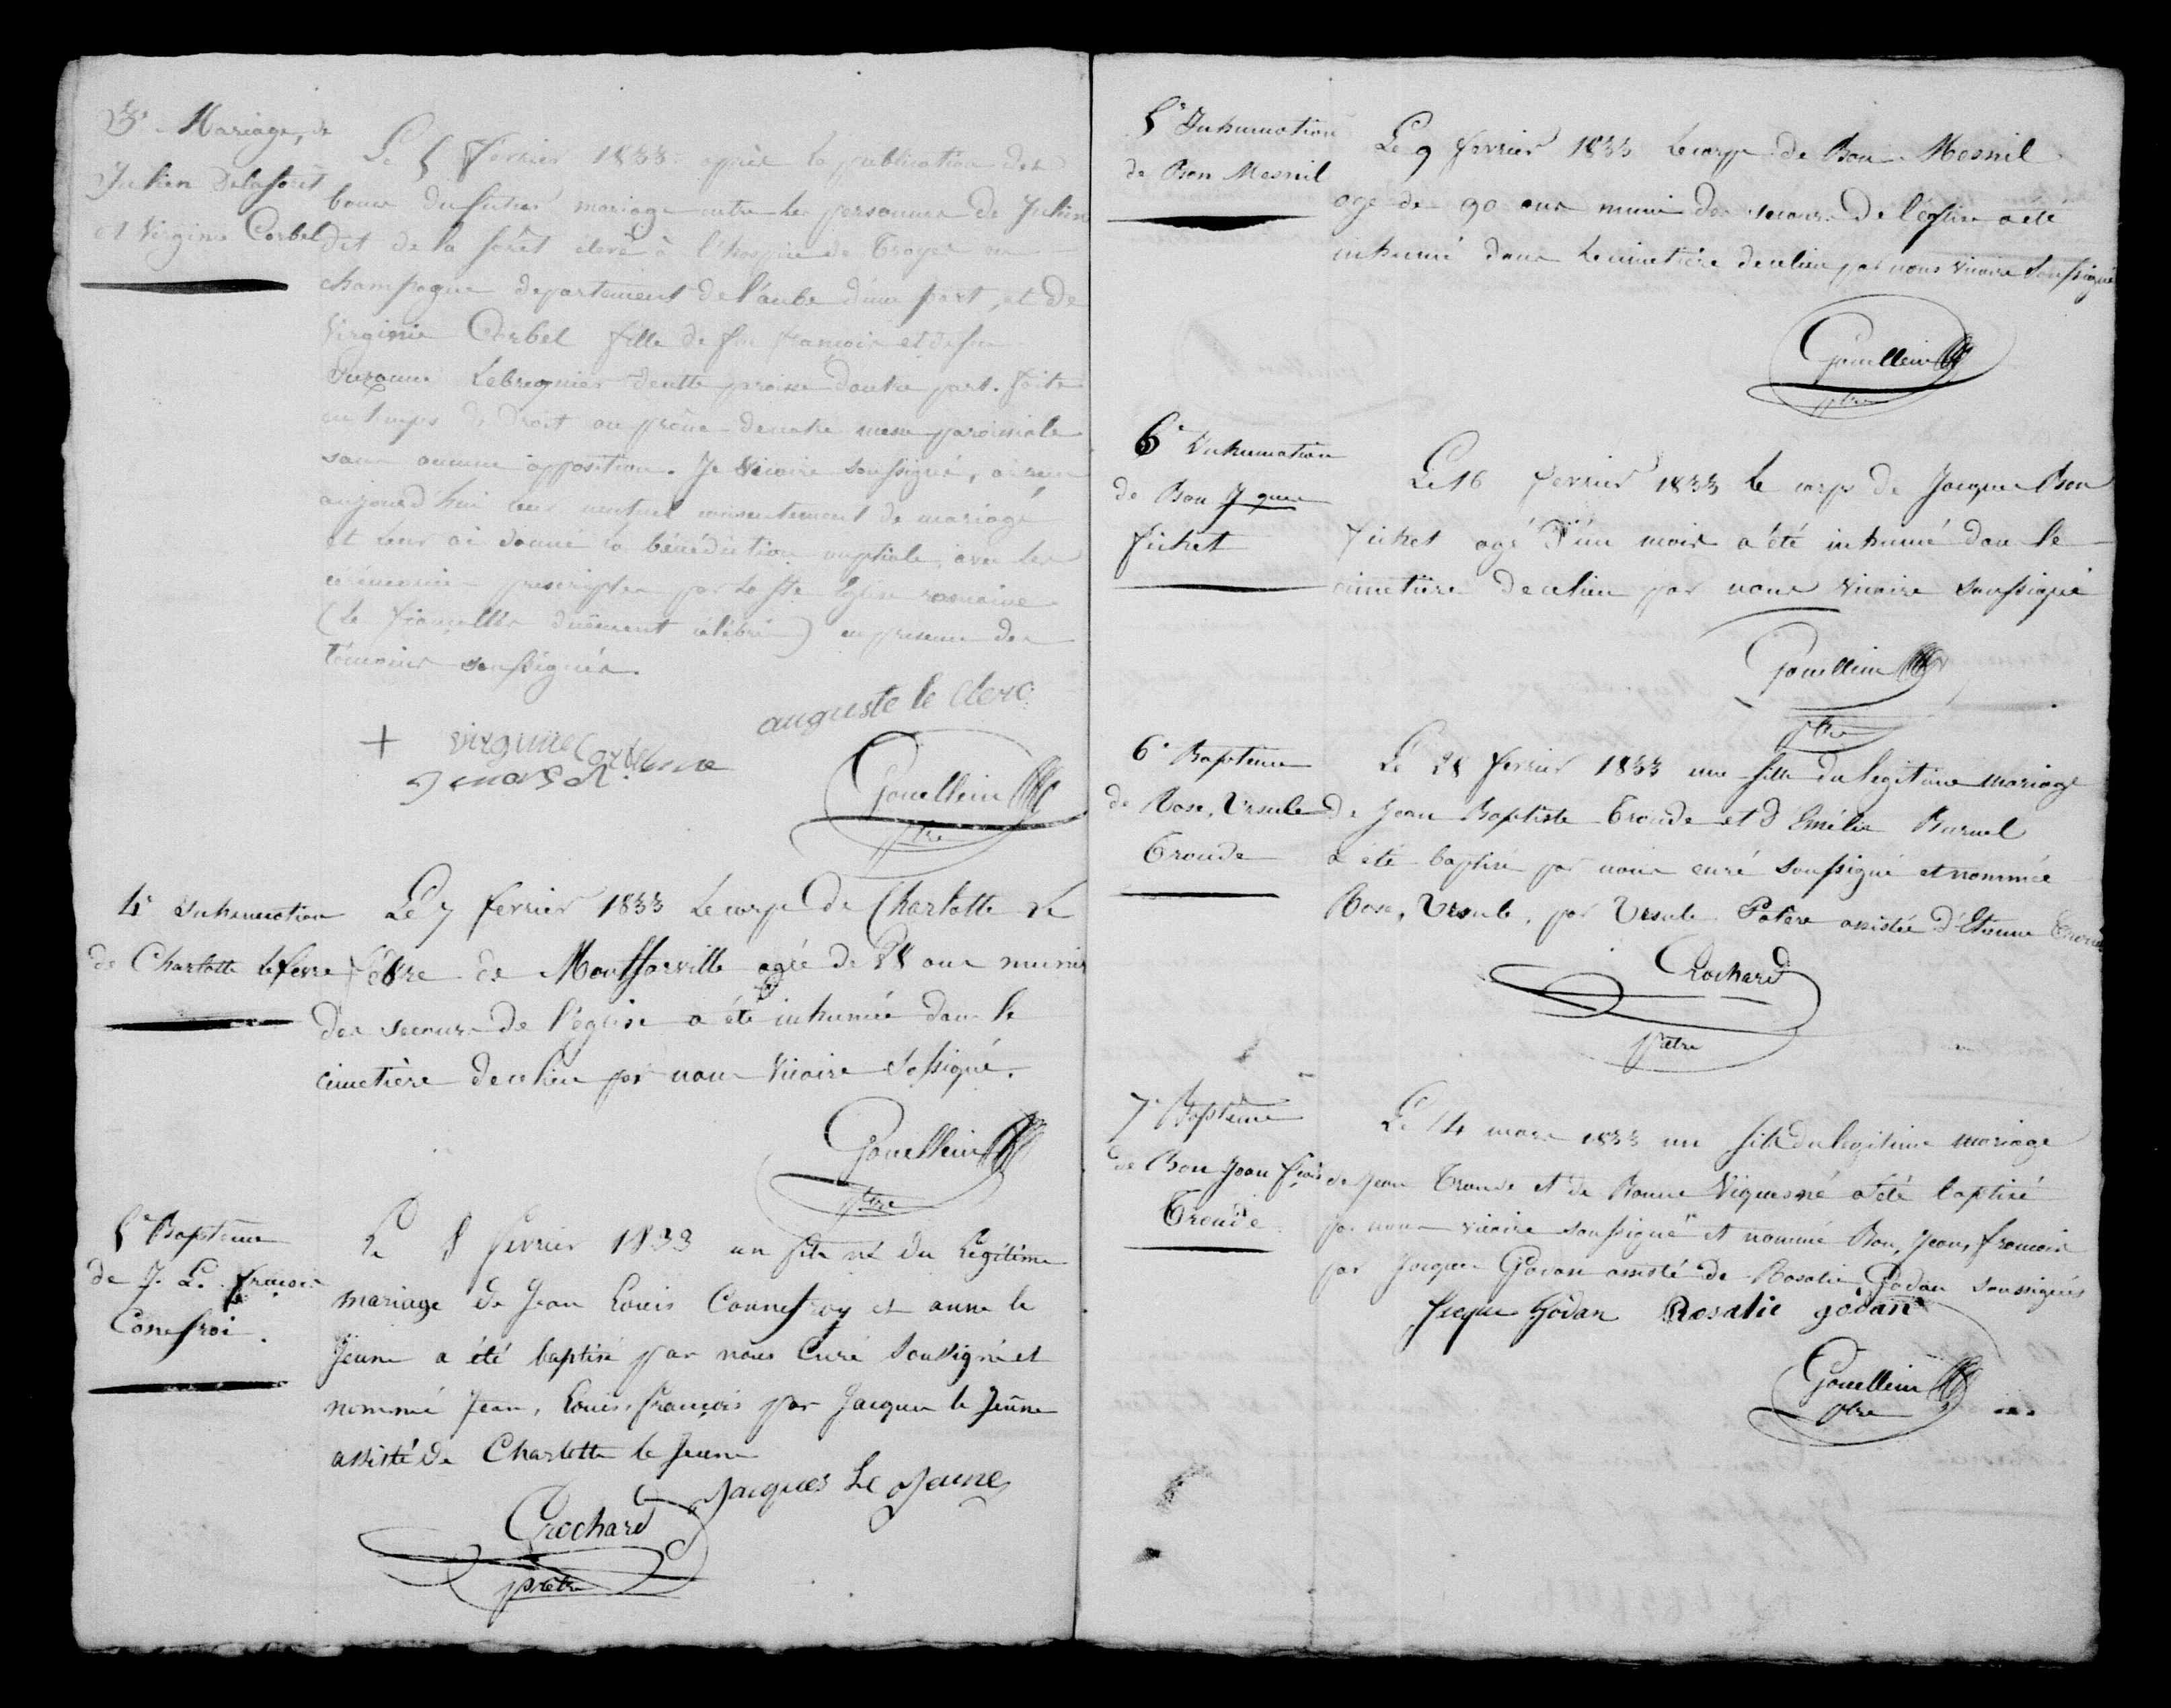 3e Mariage, de
Julien Delaforêt
et Virginie Corbel
Le 5 février 1833 après la publication des
bans du futur mariage entre les personnes de Julien
dit de la forêt élevé à l'hospice de Troyes en
champagne departement de l'aube d'une part, et de
Virginie Corbel fille de feu francois et de feu
Suzanne Lebregnier de cette paroisse d'autre part. faite
en temps de droit au prône de notre messe paroissiale
sans aucune opposition. Je Vicaire soussigné, ai reçu
aujourd'hui leur mutuel consentement de mariage
et leur ai donné la bénédiction nuptiale avec les
cérémonies prescriptes par la Ste Eglise romaine
(les fiancailles duement célébrées) en presence des
témoins soussignés.
auguste le clerc
+ virginie Corbel
Gouellein
ptre
4e Inhumation
de Charlotte lefevre
Le 7 février 1833 le corps de Charlotte Le
fêvre de Montfarville agée de ans munie
des secours de l'église a été inhumée dans le
cimetière de ce lieu par nous Vicaire sossigné.
Gouellein
ptre
5e Baptême
de J. L. françois
Conefroi.
Le 8 fevrier 1833 un fils né du légitime
mariage de Jean Louis Connefroy et anne le
Jeune a été baptisé par nous Curé soussigné et
nommé Jean, Louis, françois par Jacques le Jeune
assisté de Charlotte le Jeune
Jacques Le Jeune
Crochard
prêtre
5e Inhumation
de Bon Mesnil
Le 9 fevrier 1833 le corps de Bon Mesnil
agé de 90 ans muni des secours de l'église a été
inhumé dans le cimetière de ce lieu par nous vicaire soussigné
Gouellein
ptre
6e Inhumation
de Bon Jques
fichet
Le 16 fevrier 1833 le corps de Jacques Bon
fichet agé d'un mois a été inhumé dans le
cimetière de ce lieu par nous vicaire soussigné
Gouellein
ptre
6e Baptême
de Rose, Ursule
Troude
Le 28 fevrier 1833 une fille du legitime mariage
de Jean Baptiste Troude et d'Emélie Buruel
a été baptisé par nous curé soussigné et nommée
Rose, Ursule, par Ursule assistée d'Etienne
Crochard
prêtre
7e Baptême
de Bon Jean frçois
Troude
Le 14 mars 1833 un fils du legitime mariage
de Jean Troude et de Bonne Viquesné a été baptisé
par nous vicaire soussigné et nommé Bon, Jean, francois
par Jacques Godan assisté de Rosalie Godan soussignés
Jacque Godan Rosalie godan
Gouellein
ptre